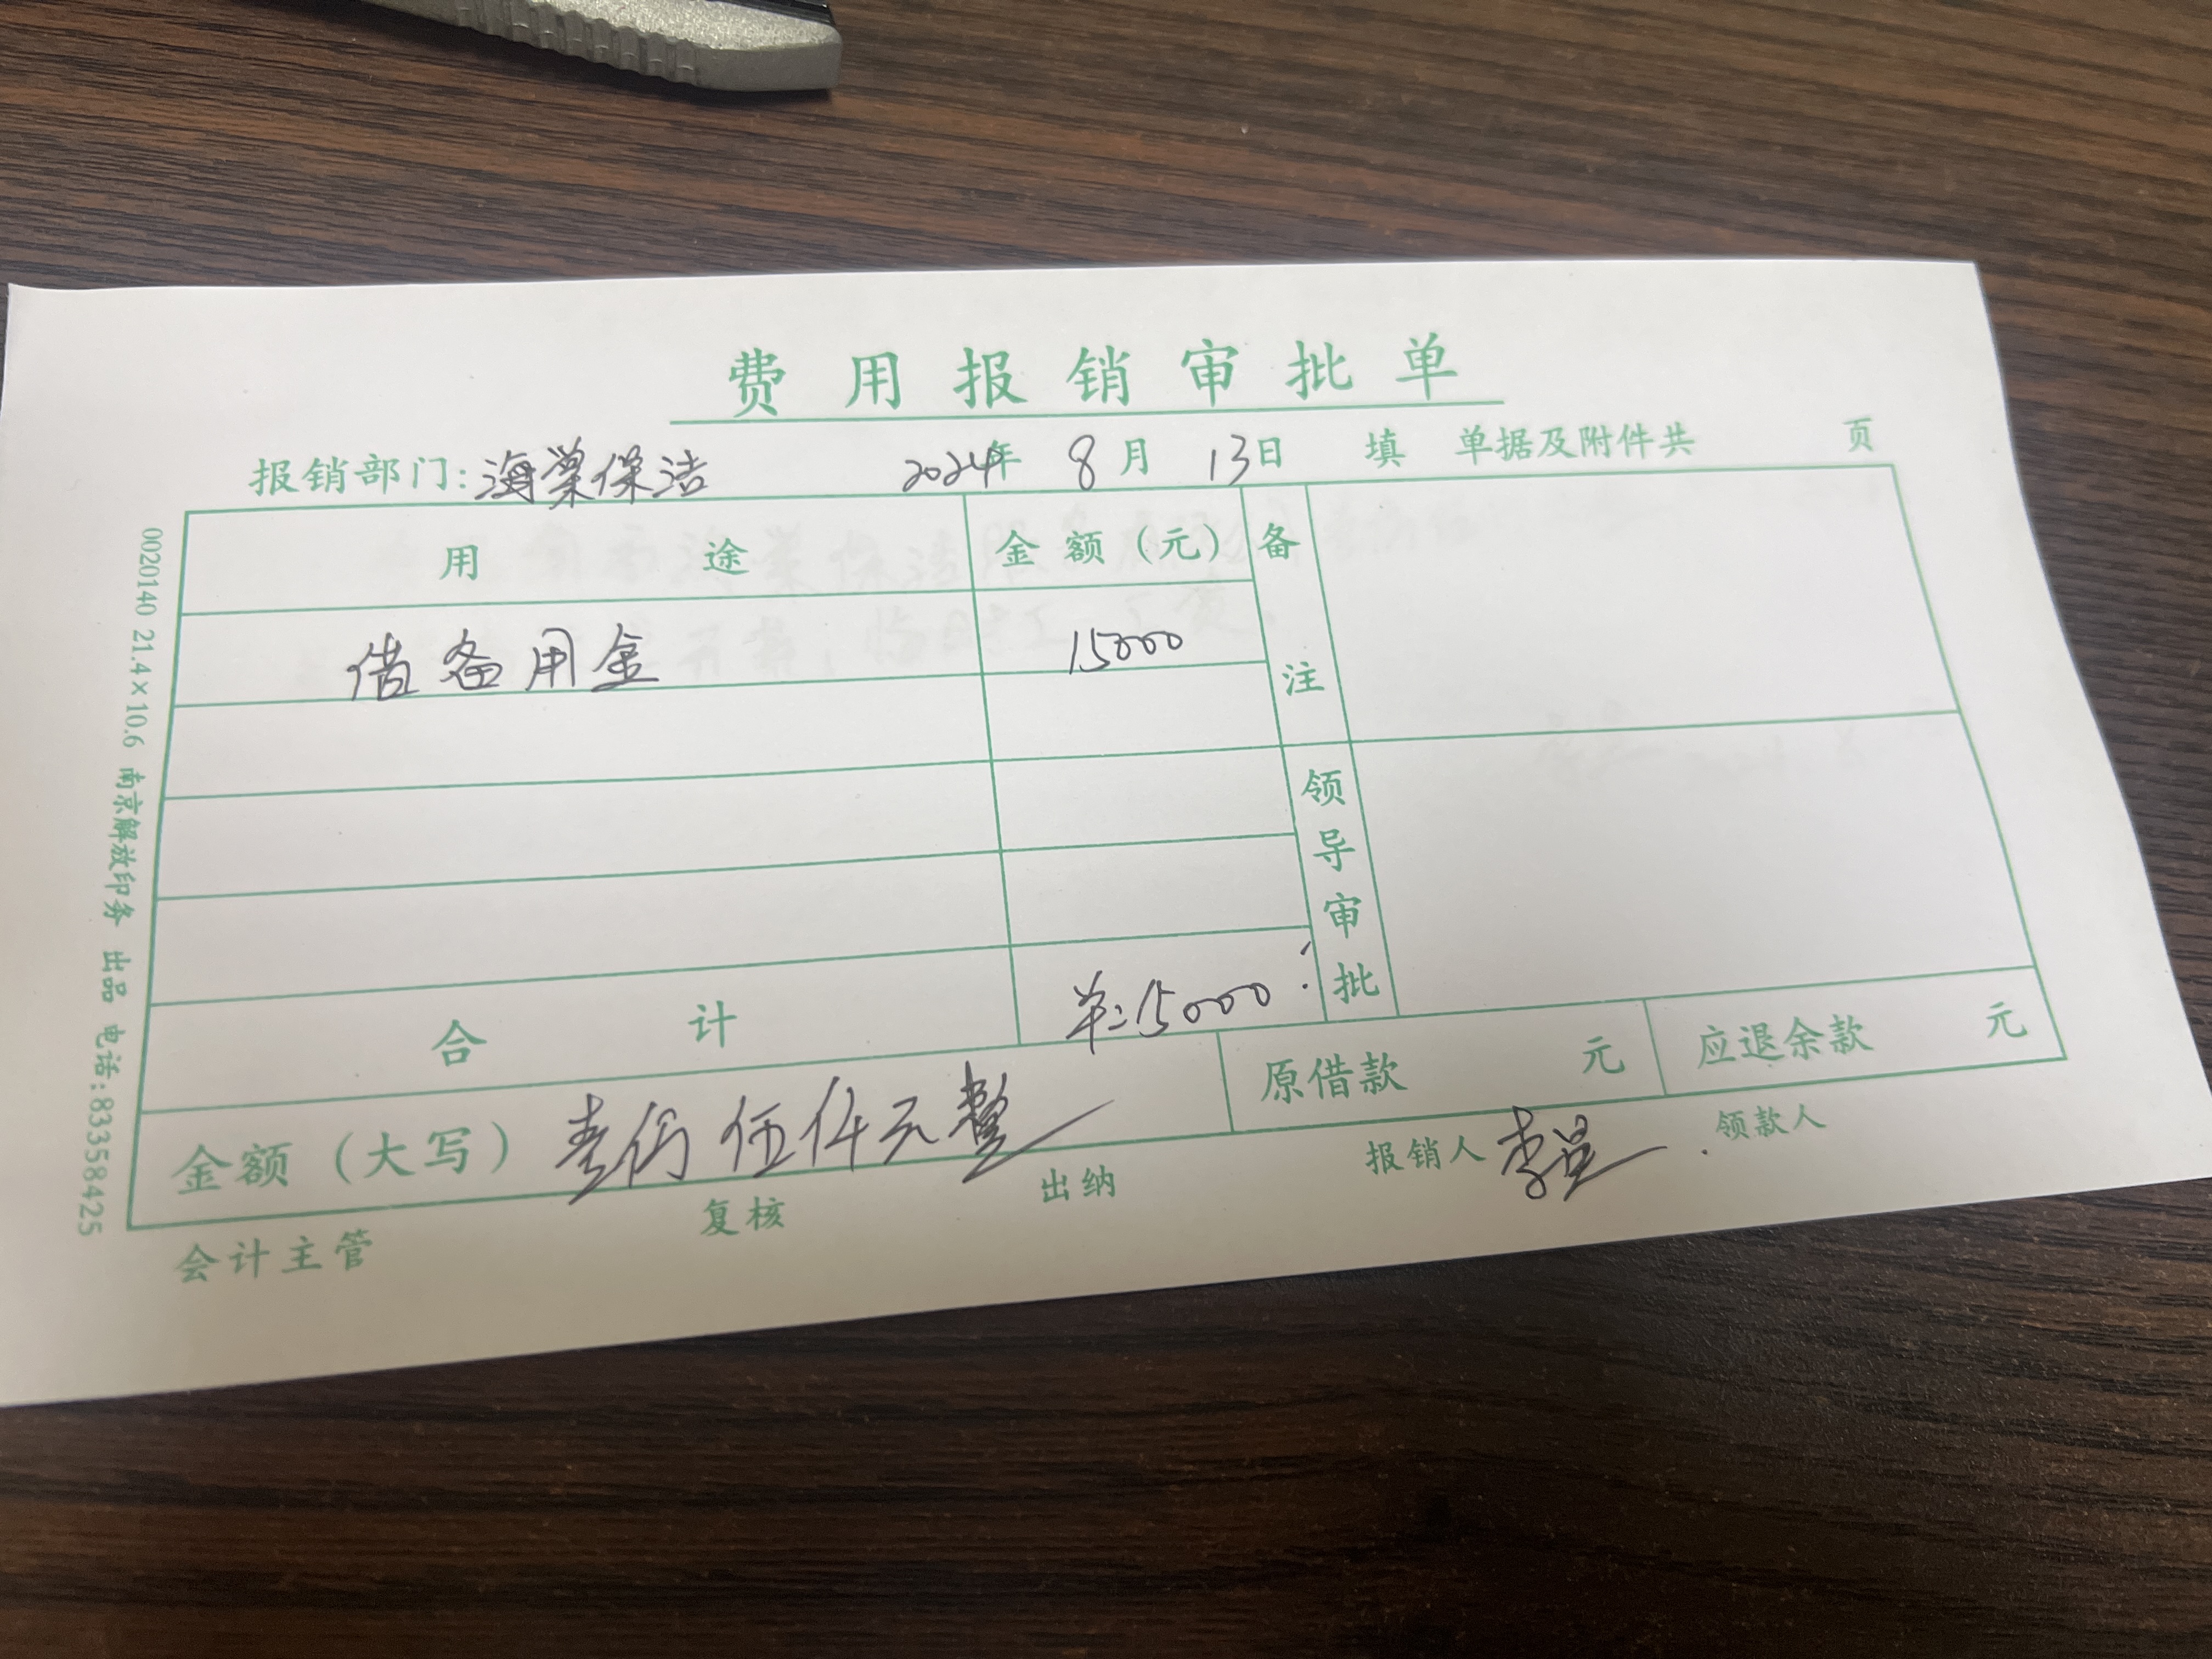 费用报销审批单
报销部门:海棠保洁 2024年 8月 13日 填 单据及附件共 页
用途 金额(元) 备注
借备用金 15000
领导审批
合计 ¥:15000
金额(大写) 壹仟伍仟元整 原借款 元 应退余款 元
会计主管 复核 出纳 报销人 李 领款人
0020140 21.4×10.6 南京解放印务 出品 电话:83358425